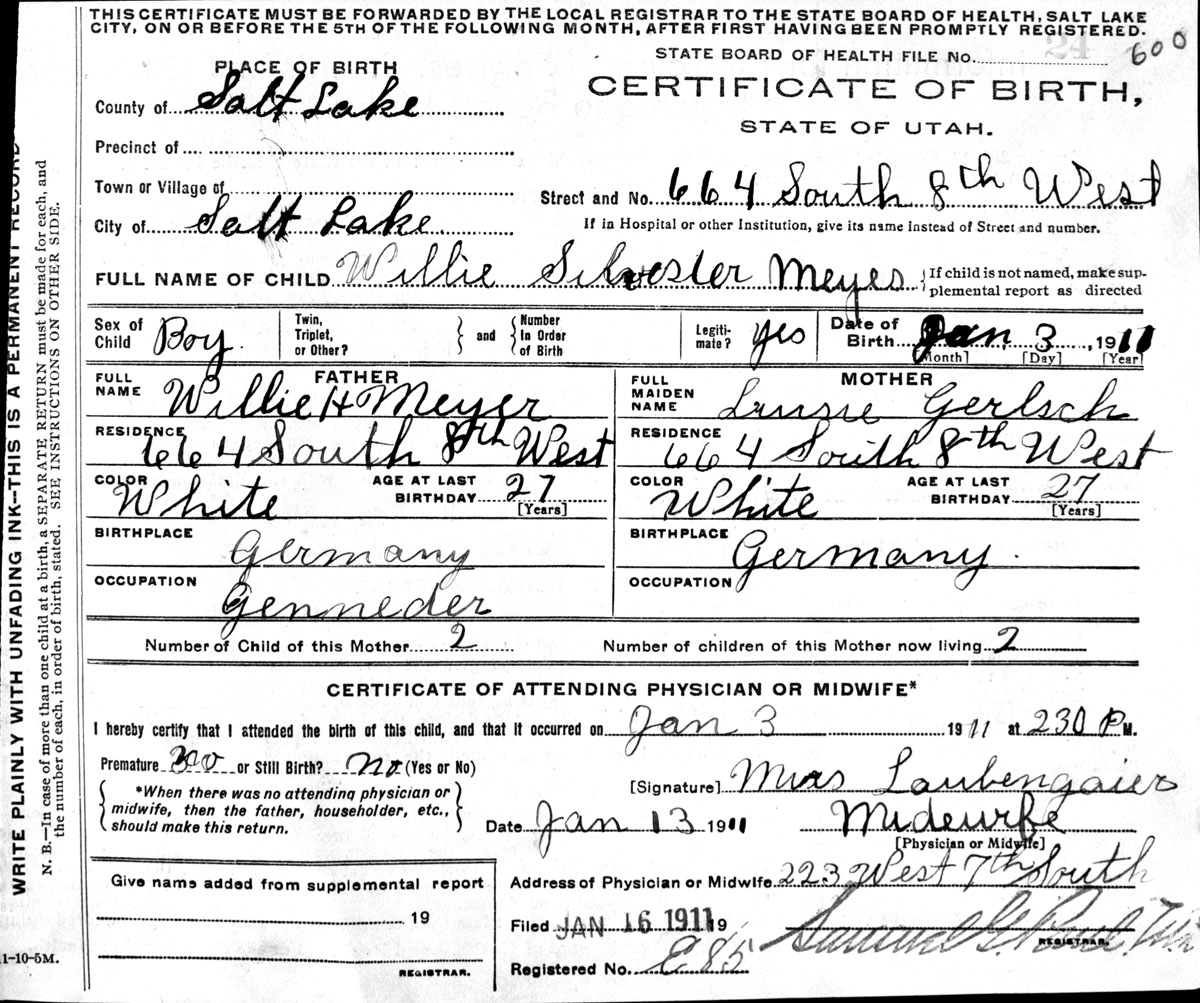 THIS CERTIFICATE MUST BE FORWARDED BY THE LOCAL REGISTRAR TO THE STATE BOARD OF HEALTH, SALT LAKE
CITY, ON OR BEFORE THE 5TH OF THE FOLLOWING MONTH, AFTER FIRST HAVING BEEN PROMPTLY REGISTERED.
STATE BOARD OF HEALTH FILE No. 24 600
PLACE OF BIRTH
CERTIFICATE OF BIRTH,
County of Salt Lake
STATE OF UTAH.
Precinct of
Town or Village of
Street and No. 664 South 8th West
City of Salt Lake
If in Hospital or other Institution, give its name instead of Street and number.
FULL NAME OF CHILD Willie Silvester Meyes { If child is not named, make sup-
plemental report as directed
Sex of Child Boy. Twin, Triplet, or Other? } and { Number In Order of Birth Legiti-mate? yes Date of Birth Jan 3, 1911
[Month] [Day] [Year]
FATHER MOTHER
FULL NAME Willie H Meyer FULL MAIDEN NAME Lunsie Gerlsch
RESIDENCE 664 South 8th West RESIDENCE 664 South 8th West
COLOR White AGE AT LAST BIRTHDAY 27 [Years] COLOR White AGE AT LAST BIRTHDAY 27 [Years]
BIRTHPLACE Germany BIRTHPLACE Germany.
OCCUPATION Genneder OCCUPATION
Number of Child of this Mother 2 Number of children of this Mother now living 2
CERTIFICATE OF ATTENDING PHYSICIAN OR MIDWIFE*
I hereby certify that I attended the birth of this child, and that it occurred on Jan 3 1911 at 230 P M.
Premature No or Still Birth? No (Yes or No)
[Signature] Mrs Laubengaier
*When there was no attending physician or
midwife, then the father, householder, etc.,
should make this return.
Date Jan 13 1911 Midewife
[Physician or Midwife]
Address of Physician or Midwife 223 West 7th South
Give name added from supplemental report
19
REGISTRAR.
Filed JAN 16 1911 19 Samuel G. Paul
REGISTRAR.
Registered No. E 85
WRITE PLAINLY WITH UNFADING INK--THIS IS A PERMANENT RECORD
N. B.—In case of more than one child at a birth, a SEPARATE RETURN must be made for each, and
the number of each, in order of birth, stated. SEE INSTRUCTIONS ON OTHER SIDE.
1-10-5M.